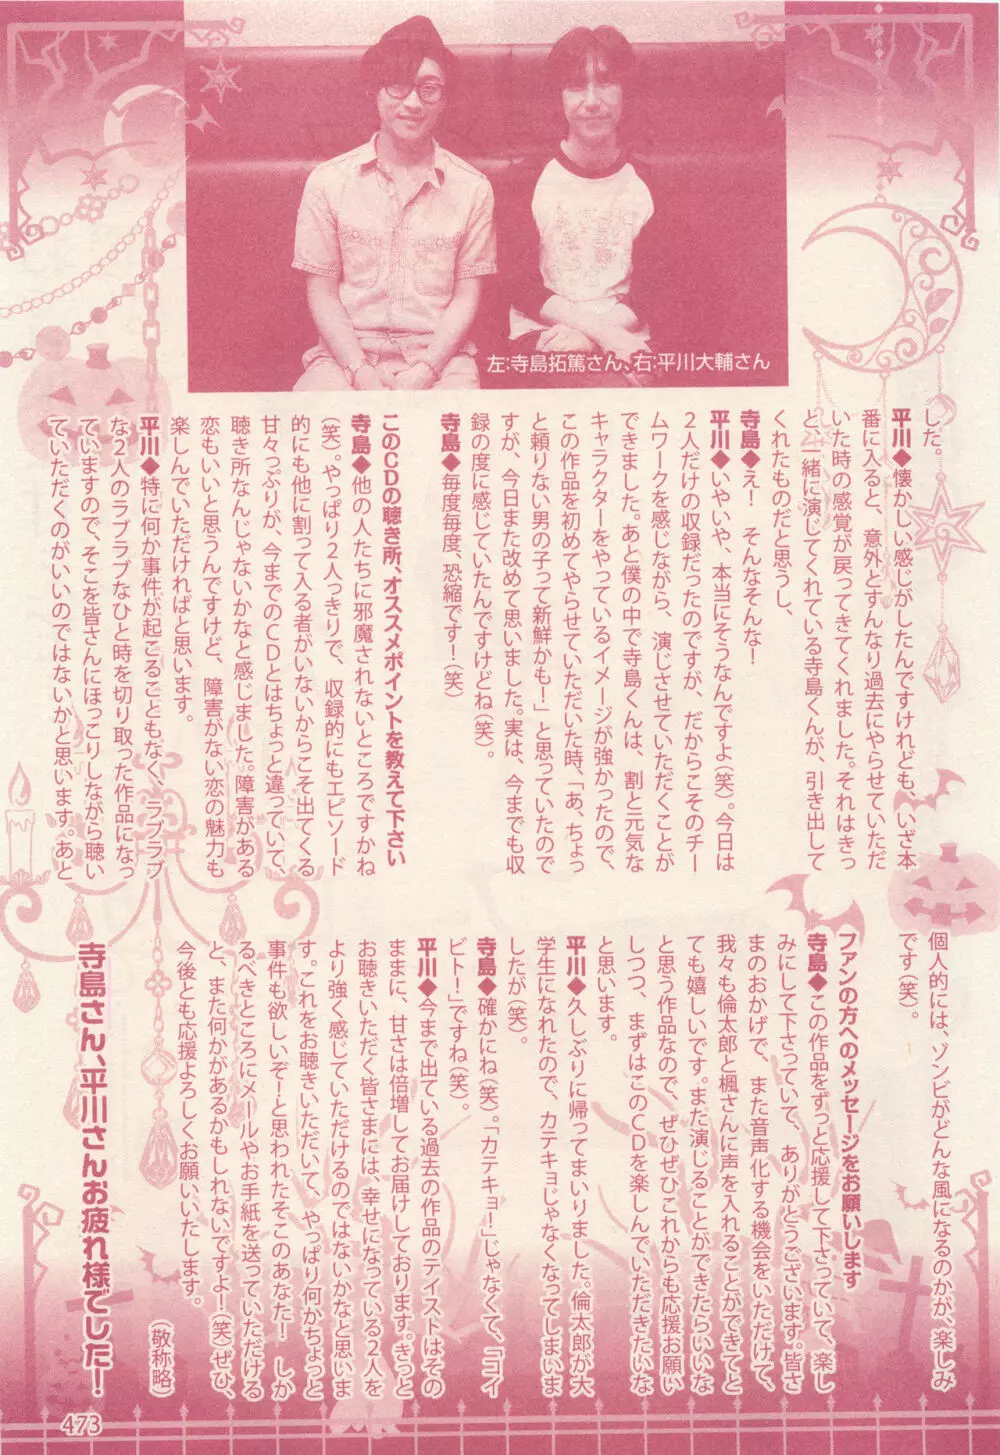 左:寺島拓篤さん、右:平川大輔さん
した。
平川◆懐かしい感じがしたんですけれども、いざ本
番に入ると、意外とすんなり過去にやらせていただ
いた時の感覚が戻ってきてくれました。それはきっ
と、一緒に演じてくれている寺島くんが、引き出して
くれたものだと思うし、
寺島◆え！　そんなそんな！
平川◆いやいや、本当にそうなんですよ(笑)。今日は
2人だけの収録だったのですが、だからこそのチー
ムワークを感じながら、演じさせていただくことが
できました。あと僕の中で寺島くんは、割と元気な
キャラクターをやっているイメージが強かったので、
この作品を初めてやらせていただいた時、「あ、ちょっ
と頼りない男の子って新鮮かも！」と思っていたので
すが、今日また改めて思いました。実は、今までも収
録の度に感じていたんですけどね(笑)。
寺島◆毎度毎度、恐縮です！(笑)
このCDの聴き所、オススメポイントを教えて下さい
寺島◆他の人たちに邪魔されないところですかね
(笑)。やっぱり2人っきりで、収録的にもエピソード
的にも他に割って入る者がいないからこそ出てくる
甘々っぷりが、今までのCDとはちょっと違っていて、
聴き所なんじゃないかなと感じました。障害がある
恋もいいと思うんですけど、障害がない恋の魅力も
楽しんでいただければと思います。
平川◆特に何か事件が起こることもなく、ラブラブ
な2人のラブラブなひと時を切り取った作品になっ
ていますので、そこを皆さんにほっこりしながら聴い
ていただくのがいいのではないかと思います。あと
個人的には、ゾンビがどんな風になるのかが、楽しみ
です(笑)。
ファンの方へのメッセージをお願いします
寺島◆この作品をずっと応援して下さっていて、楽し
みにして下さっていて、ありがとうございます。皆さ
まのおかげで、また音声化する機会をいただけて、
我々も倫太郎と楓さんに声を入れることができてと
ても嬉しいです。また演じることができたらいいな
と思う作品なので、ぜひぜひこれからも応援お願い
しつつ、まずはこのCDを楽しんでいただきたいな
と思います。
平川◆久しぶりに帰ってまいりました。倫太郎が大
学生になれたので、カテキョじゃなくなってしまいま
したが(笑)。
寺島◆確かにね(笑)。「カテキョ！」じゃなくて、「コイ
ビト！」ですね(笑)。
平川◆今まで出ている過去の作品のテイストはその
ままに、甘さは倍増してお届けしております。きっと
お聴きいただく皆さまには、幸せになっている2人を
より強く感じていただけるのではないかなと思いま
す。これをお聴きいただいて、やっぱり何かちょっと
事件も欲しいぞーと思われたそこのあなた！　しか
るべきところにメールやお手紙を送っていただける
と、また何かがあるかもしれないですよ！(笑)ぜひ、
今後とも応援よろしくお願いいたします。
(敬称略)
寺島さん、平川さんお疲れ様でした！
473